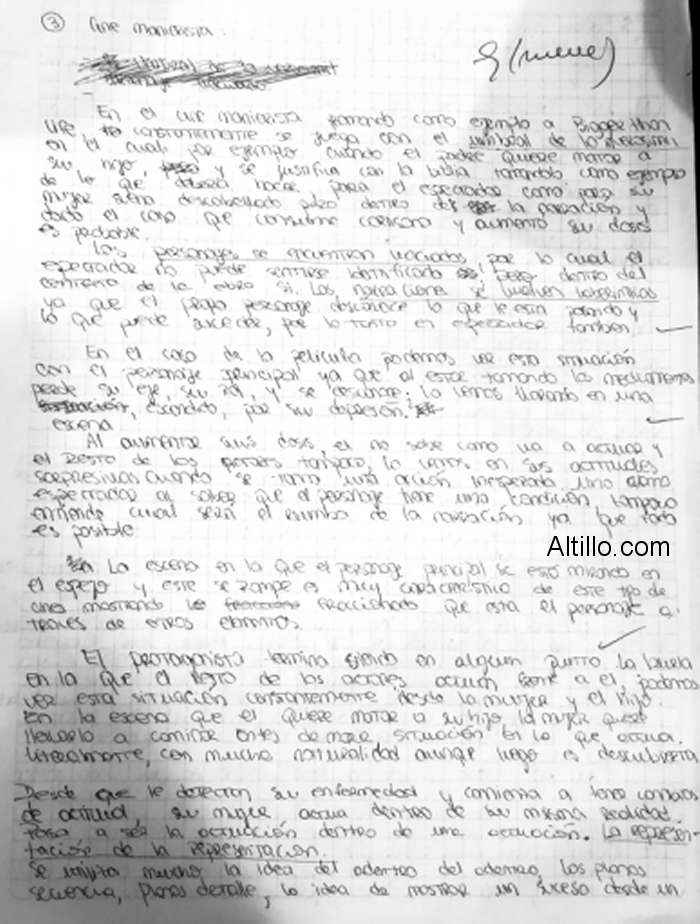 ③ Cine manierista.
9 (nueve)
En el cine manierista tomando como ejemplo a Bigger than
life constantemente se juega con el umbral de lo
en la cual por ejemplo cuando el padre quiere matar a
su hijo, y se justifica con la biblia tomandolo como ejemplo
de lo que debera hacer, para el espectador como para su
mujer suena descabellado pero dentro de la narración y
dado el caso que consume cortisona y aumentó su dosis
es probable.
Los personajes se encuentran vaciados, por lo cual el
espectador no puede sentirse identificado pero dentro del
contexto de la obra si. Las narraciones se vuelven laberínticas
ya que el propio personaje desconoce lo que le esta pasando y
lo que puede suceder, por lo tanto en espectador tambien.
En el caso de la película podemos ver esta situación
con el personaje principal ya que al estar tomando los medicamentos
pierde su eje, su rol, y se desborda; lo vemos llorando en una
escena, escondido, por su depresion.
Al aumentar sus dosis, el no sabe como va a actuar y
el resto de los tampoco, lo vemos en sus actitudes
sorpresivas cuando se toma una acción inesperada. Uno como
espectador al saber que el personaje tiene una condición tampoco
entiende cual será el rumbo de la narración ya que todo
es posible
Altillo.com
La escena en la que el personaje principal se está mirando en
el espejo y este se rompe es muy caracteristico de este tipo de
cine mostrando lo fraccionado que esta el personaje a
través de otros elementos.
El protagonista termina siendo en algun punto
en la que el resto de los actores actuan frente a el, podemos
ver esta situación constantemente desde la mujer y el hijo.
En la escena que el quiere matar a su hijo, la mujer quiere
llevarlo a caminar antes de situación en la que actua.
literalmente, con mucha naturalidad aunque luego es descubierta
Desde que le detectan su enfermedad y comienza a tener cambios
de actitud, su mujer actua dentro de su misma realidad.
Pasa a ser la actuación dentro de una actuación. La represen-
tación de la representación.
Se utiliza mucho la idea del adentro del adentro, los planos
secuencia, planos detalle, la idea de mostrar un suceso desde un